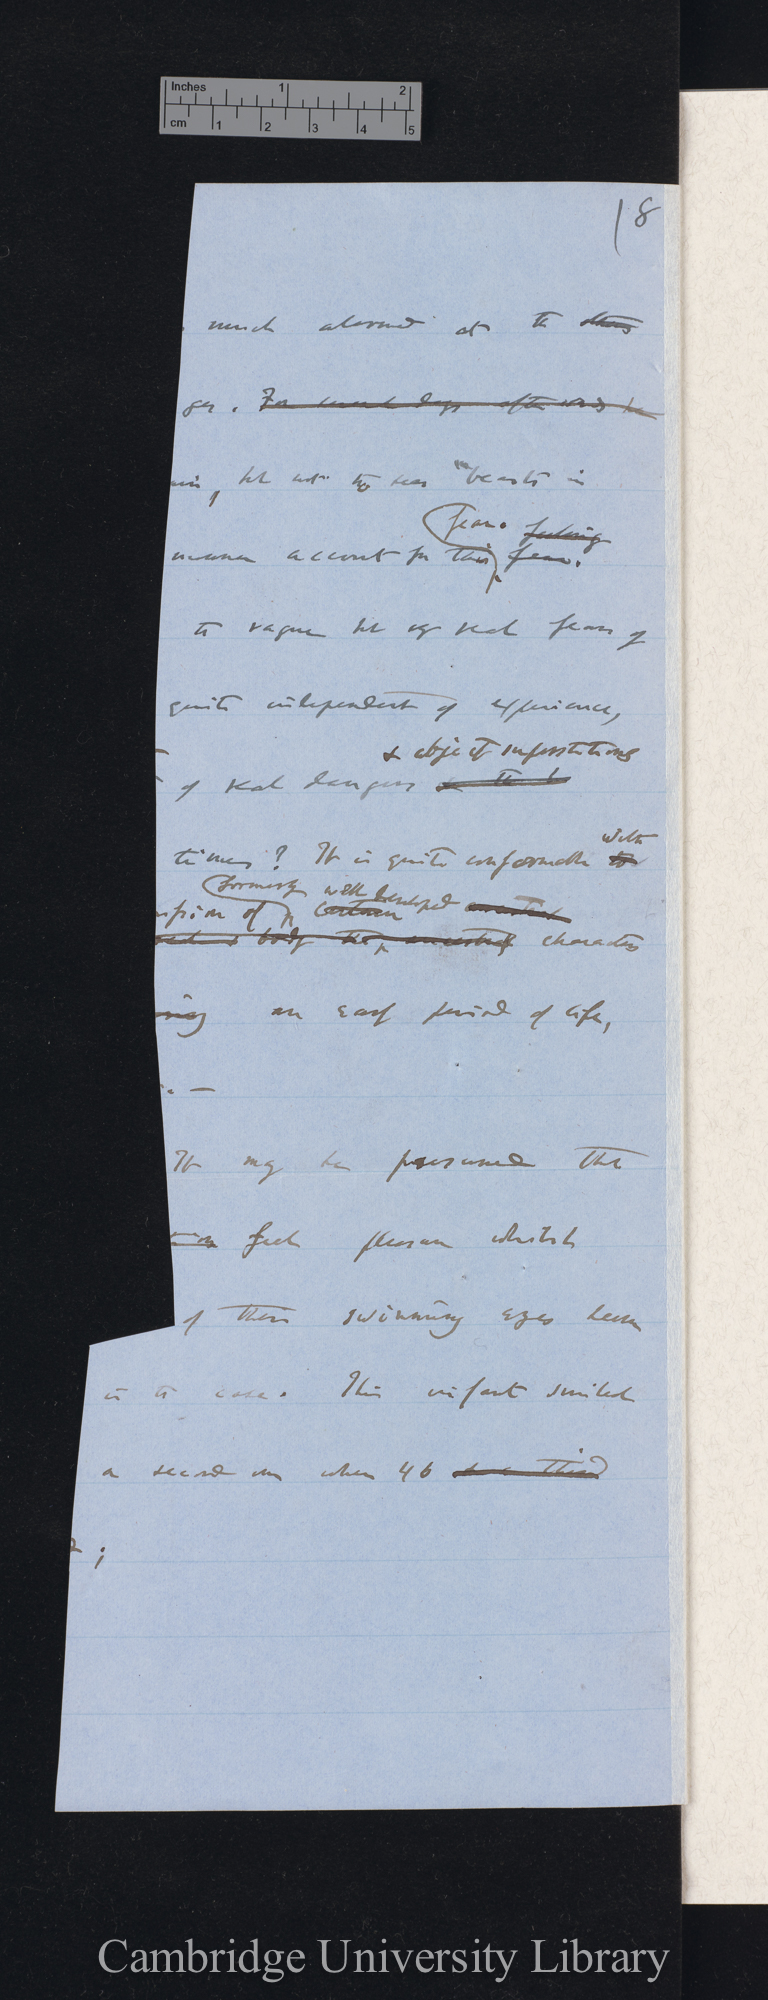 Inches 1 2
cm 1 2 3 4 5
18
much alarmed at the
ger. For several days afterwards he
but not the "beasts in
fear. feeling
manner account for this fear.
the vague but very real fears of
quite independent of experience,
& abject superstitions
of real dangers
with
times? It is quite conformable to
formerly well developed
of certain
body the ancestral characters
an early period of life,
—
It may be presumed that
feel pleasure whilst
of their swimming eyes
is the case. This infant smiled
a second one when 46
;
Cambridge University Library